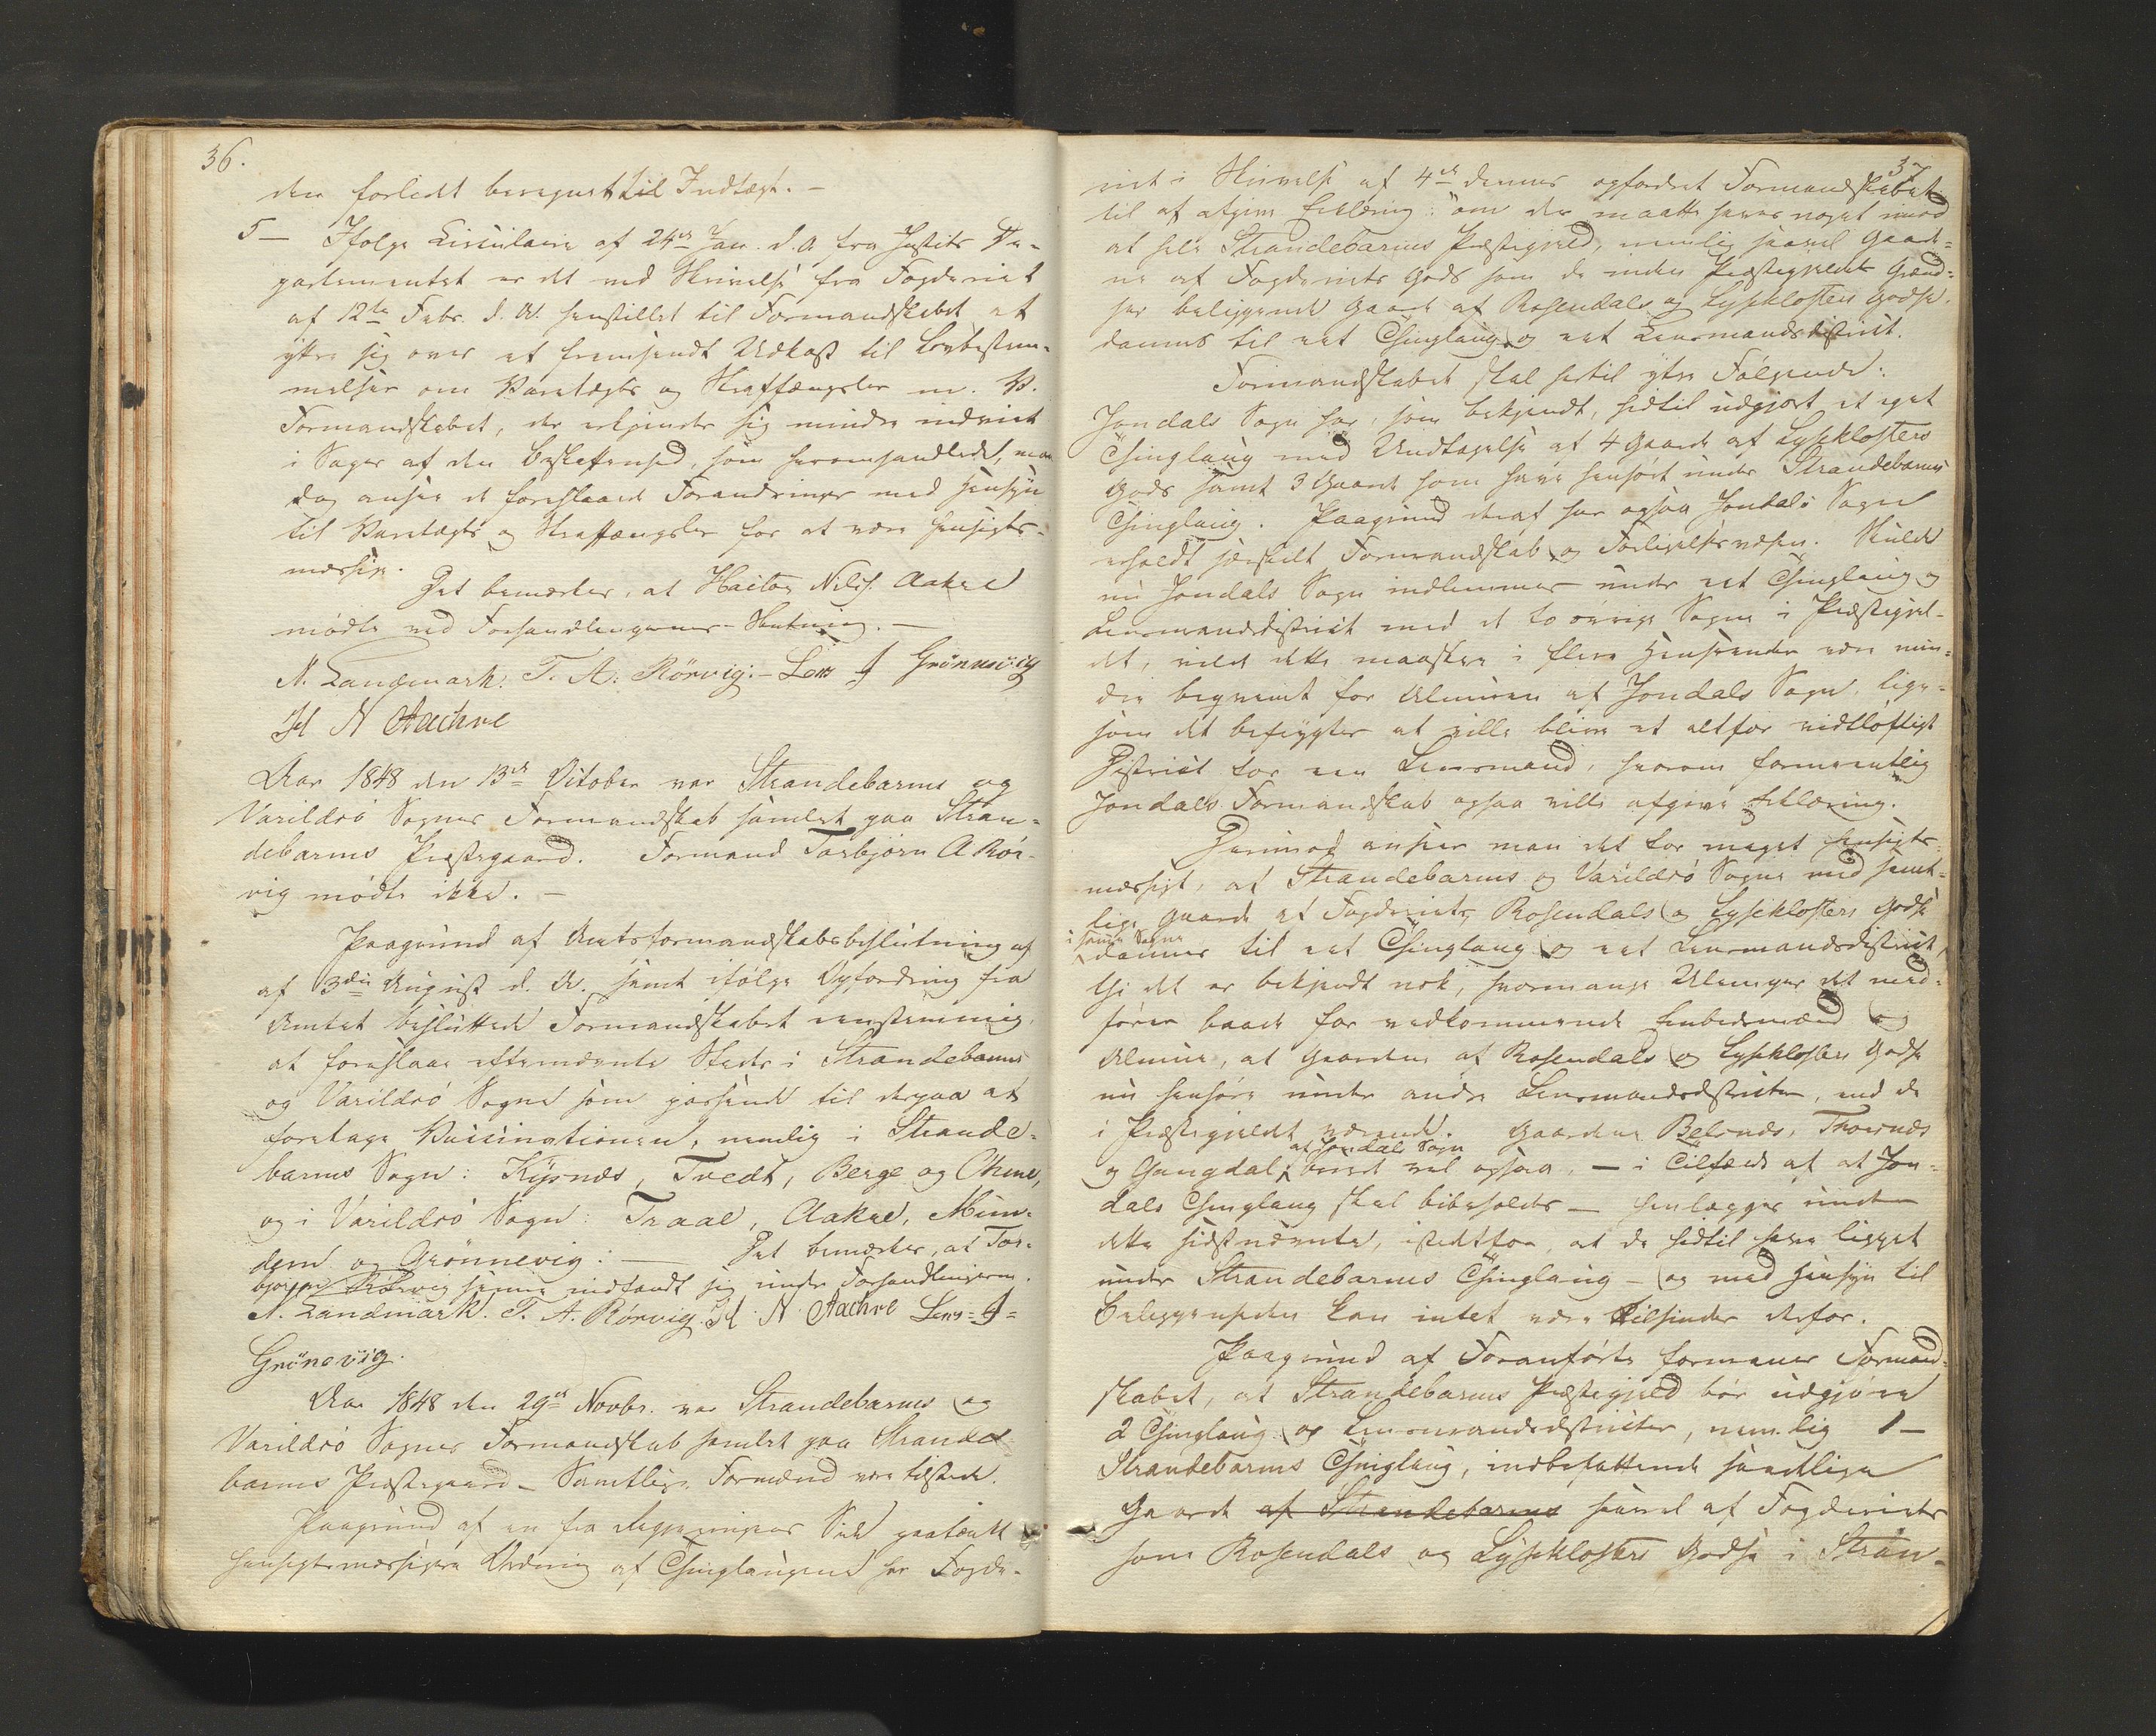 36.
den forledt beregnet til Indtægt. —
5 — Ifølge Circulaire af 24de Jan. d. A. fra Justits De-
partementet er det ved Skrivelse fra Fogderiet
af 12te Febr. d. A. henstillet til Formandskabet at
yttre sig over et fremsendt Udkast til Lovbestem-
melser om Varetægts og Straffængsler m. V.
Formandskabet, der erkjender sig mindre indviet
i Sager af den Beskaffenhed, som heromhandlede, maa
dog ansee de foreslaaede Forandringer med Hensyn
til Varetægts og Straffængsler for at være hensigts-
mæssige.
Det bemærkes, at Haitor Nilss. Aakre
mødte ved Forhandlingernes Slutning. —
N. Landmark. T. A. Rörvig. – Lars J Grönnevig
H N Aachre
Aar 1848 den 13de October var Strandebarms og
Varildsö Sognes Formandskab samlet paa Stran-
debarms Præstegaard. Formand Torbjørn A Rör-
vig mødte ikke. —
Paagrund af Amtsformandskabsbeslutning af
af 3die August d. A. samt ifølge Opfordring fra
Amtet besluttede Formandskabet eenstemmig,
at foreslaae eftermeldte Steder i Strandebarms
og Varildsö Sogne som passende til derpaa at
foretage Vaccinationen, nemlig i Strande-
barms Sogn: Kysnæs, Tvedt, Berge og Oxne,
og i Varildsö Sogn: Traae, Aakre, Mun-
dem og Grönnevig. — Det bemærkes, at Tor-
bjørn Rörvig senere indfandt sig under Forhandlingerne.
N. Landmark. T. A. Rörvig. H N Aachre Lars J
Grönevig.
Aar 1848 den 29de Novbr. var Strandebarms og
Varildsö Sognes Formandskab samlet paa Strande-
barms Præstegaard – Samtlige Formænd vare tilstede.
Paagrund af en fra Regjeringens Side paatænkt
hensigtsmæssigere Ordning af Thinglaugene har Fogde-
37
riet i Skrivelse af 4de dennes opfordret Formandskabet
til at afgive Erklæring: "om der maatte haves noget imod
at hele Strandebarms Præstegjeld, nemlig saavel Gaarde-
ne af Fogderiets Gods som de inden Præstegjeldets Grænd-
ser beliggende Gaarde af Rosendals og Lyseklosters Godse,
dannes til eet Thinglaug og eet Lensmandsdistrict.
Formandskabet skal hertil yttre Følgende:
Jondals Sogn har, som bekjendt, hidtil udgjort et eget
Thinglaug med Undtagelse af 4 Gaarde af Lyseklosters
Gods samt 3 Gaarde som have henhørt under Strandebarms
Thinglaug. Paagrund deraf har ogsaa Jondals Sogn
erholdt særskilt Formandskab og Forligelsesvæsen. Skulde
nu Jondals Sogn indlemmes under eet Thinglaug og
Lensmandsdistrict med de to øvrige Sogne i Præstegjel-
det, vilde dette maaskee i flere Henseender være min-
dre beqvemt for Almuen af Jondals Sogn, lige-
som det befrygtes at ville blive et altfor vidtløftigt
District for een Lensmand, hvorom formeentlig
Jondals Formandskab ogsaa ville afgive Erklæring.
Derimod anseer man det for meget hensigts-
mæssigt, at Strandebarms og Varildsö Sogne med samt-
lige Gaarde af Fogderiets, Rosendals og Lyseklosters Godse
i samme Sogne
dannes til eet Thinglaug og eet Lensmandsdistrict,
thi det er bekjendt nok, hvormange Ulemper det med-
fører baade for vedkommende Embedsmænd og
Almue, at Gaardene af Rosendals og Lyseklosters Godse
nu henhøre under andre Lensmandsdistricter, end de
i Præstegjeldet værende. Gaardene Belsnæs, Thorsnæs
af Jondals Sogn
og Gangdal burde vel ogsaa, – i Tilfælde af at Jon-
dals Thinglaug skal bibeholdes – henlægges under
dette sidstnævnte, istedetfor, at de hidtil have ligget
under Strandebarms Thinglaug – og med Hensyn til
Beliggenheden kan intet være tilhinder derfor.
Paagrund af Foranførte formener Formand-
skabet, at Strandebarms Præstegjeld bør udgjøre
2 Thinglaug og Lensmandsdistricter, nemlig 1 –
Strandebarms Thinglaug, indbefattende samtlige
Gaarde af Strandebarms saavel af Fogderiets
som Rosendals og Lyseklosters Godse i Stran-